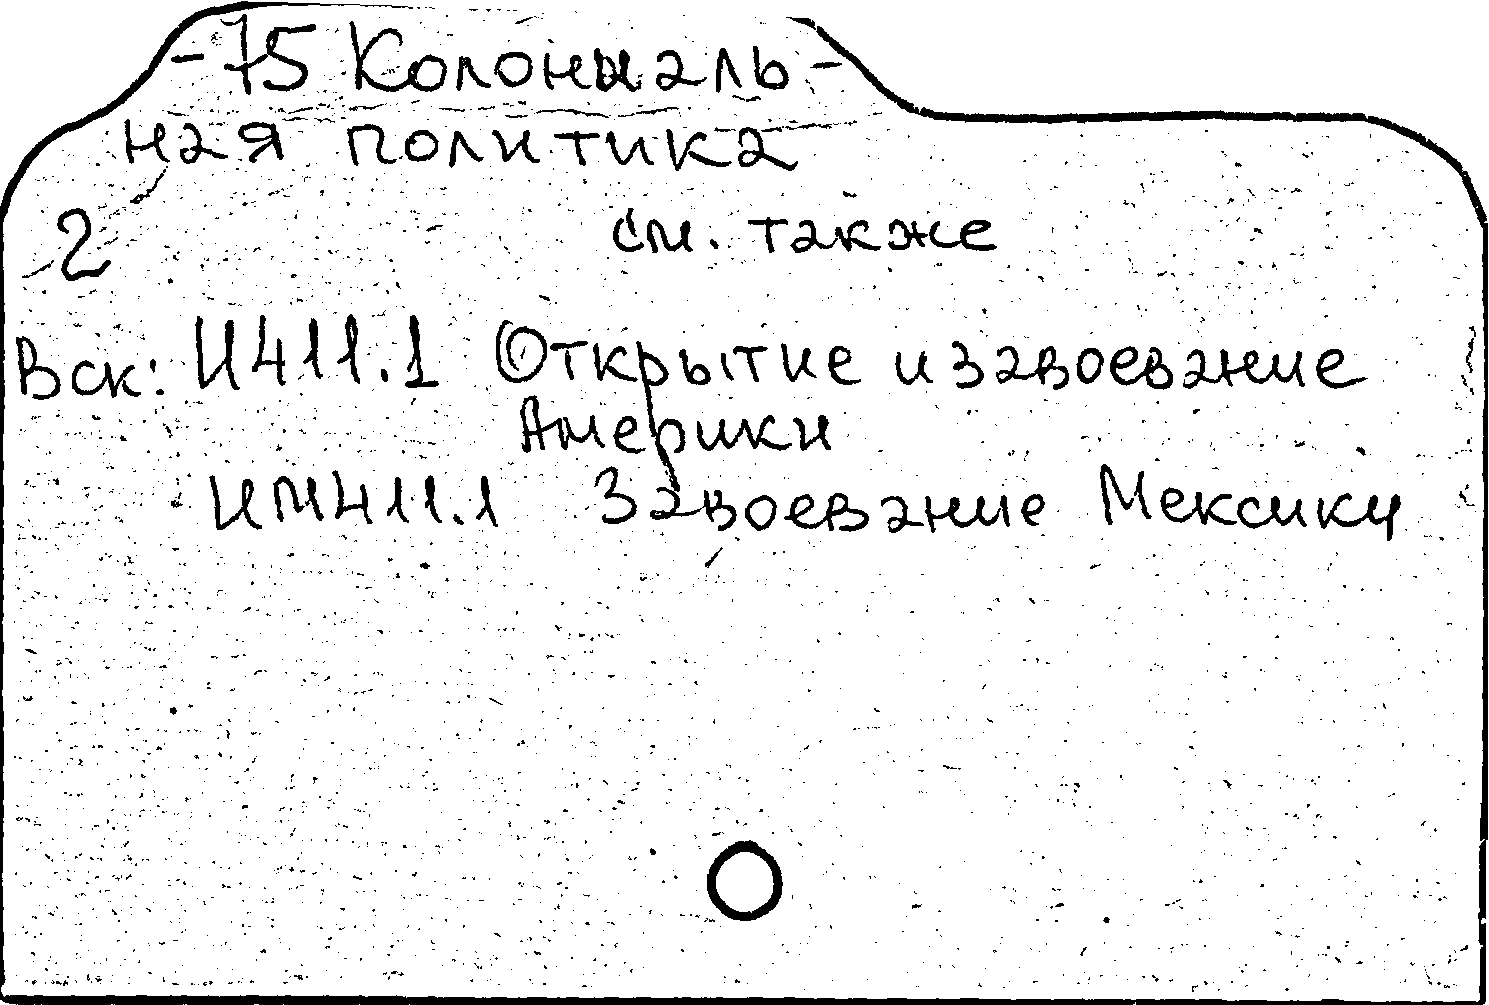 -75 Колониаль-
ная политика
2 см. также
Вск: И411.1 Открытие и завоевание
Америки
ИМ411.1 Завоевание Мексики